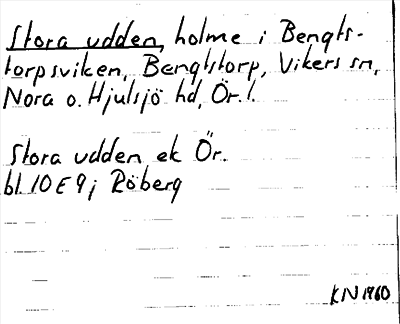 Stora udden, holme i Bengts-
torpsviken, Bengtstorp, Vikers sn,
Nora o. Hjulsjö hd, Ör. l.
Stora udden ek Ör.
bl. 10E9j Röberg
KN 1960